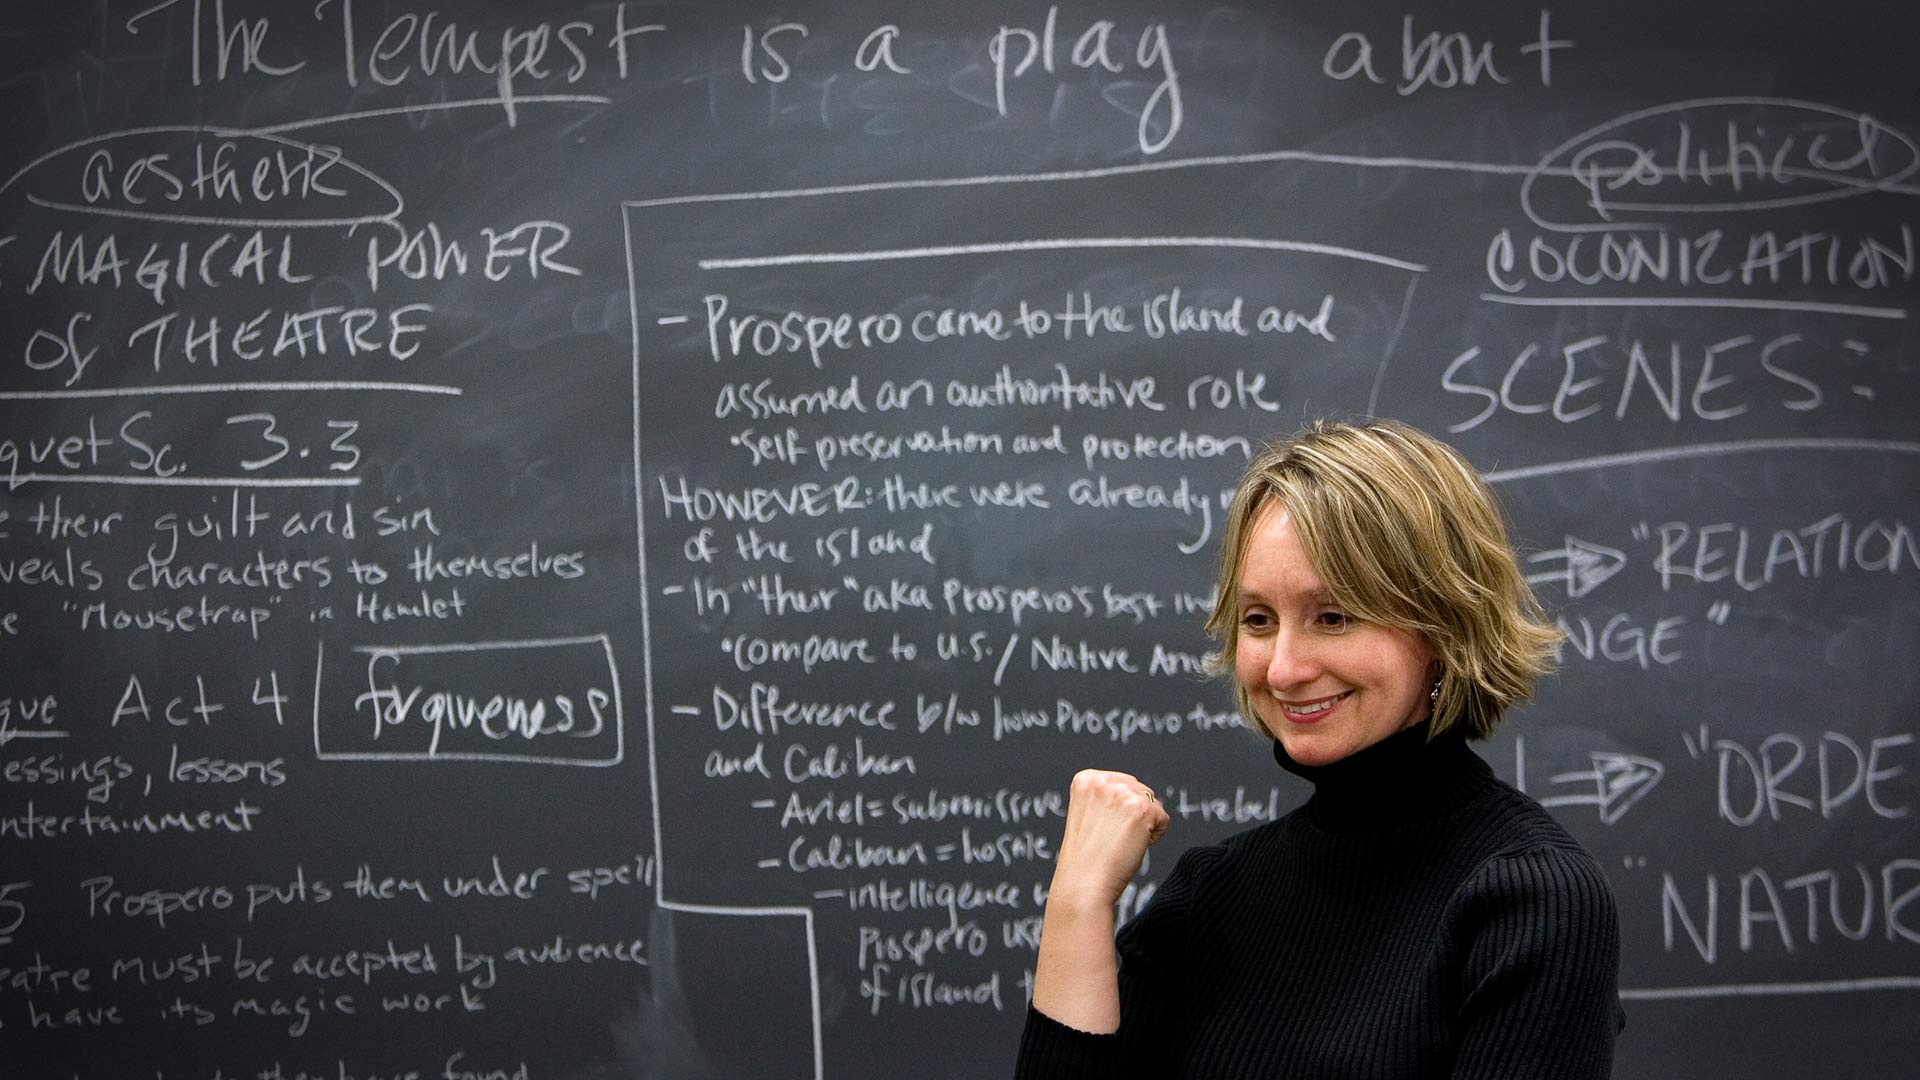 The Tempest is a play about
aesthetic
MAGICAL POWER
of THEATRE
Sc. 3.3
their guilt and sin
characters to themselves
"Mousetrap" in Hamlet
Act 4
forgiveness
lessons
5 Prospero puts them under spell
must be accepted by audience
have its magic work
found
- Prospero came to the island and
assumed an authoritative role
• self preservation and protection
HOWEVER: there were already
of the island
- In "their" aka Prospero's best
• compare to U.S. / Native
- Difference b/w how Prospero
and Caliban
- Ariel = submissive rebel
- Caliban =
- intelligence
Prospero
of island
political
COLONIZATION
SCENES:
⇒ "RELATION
NGE"
⇒ "ORDE
"NATUR